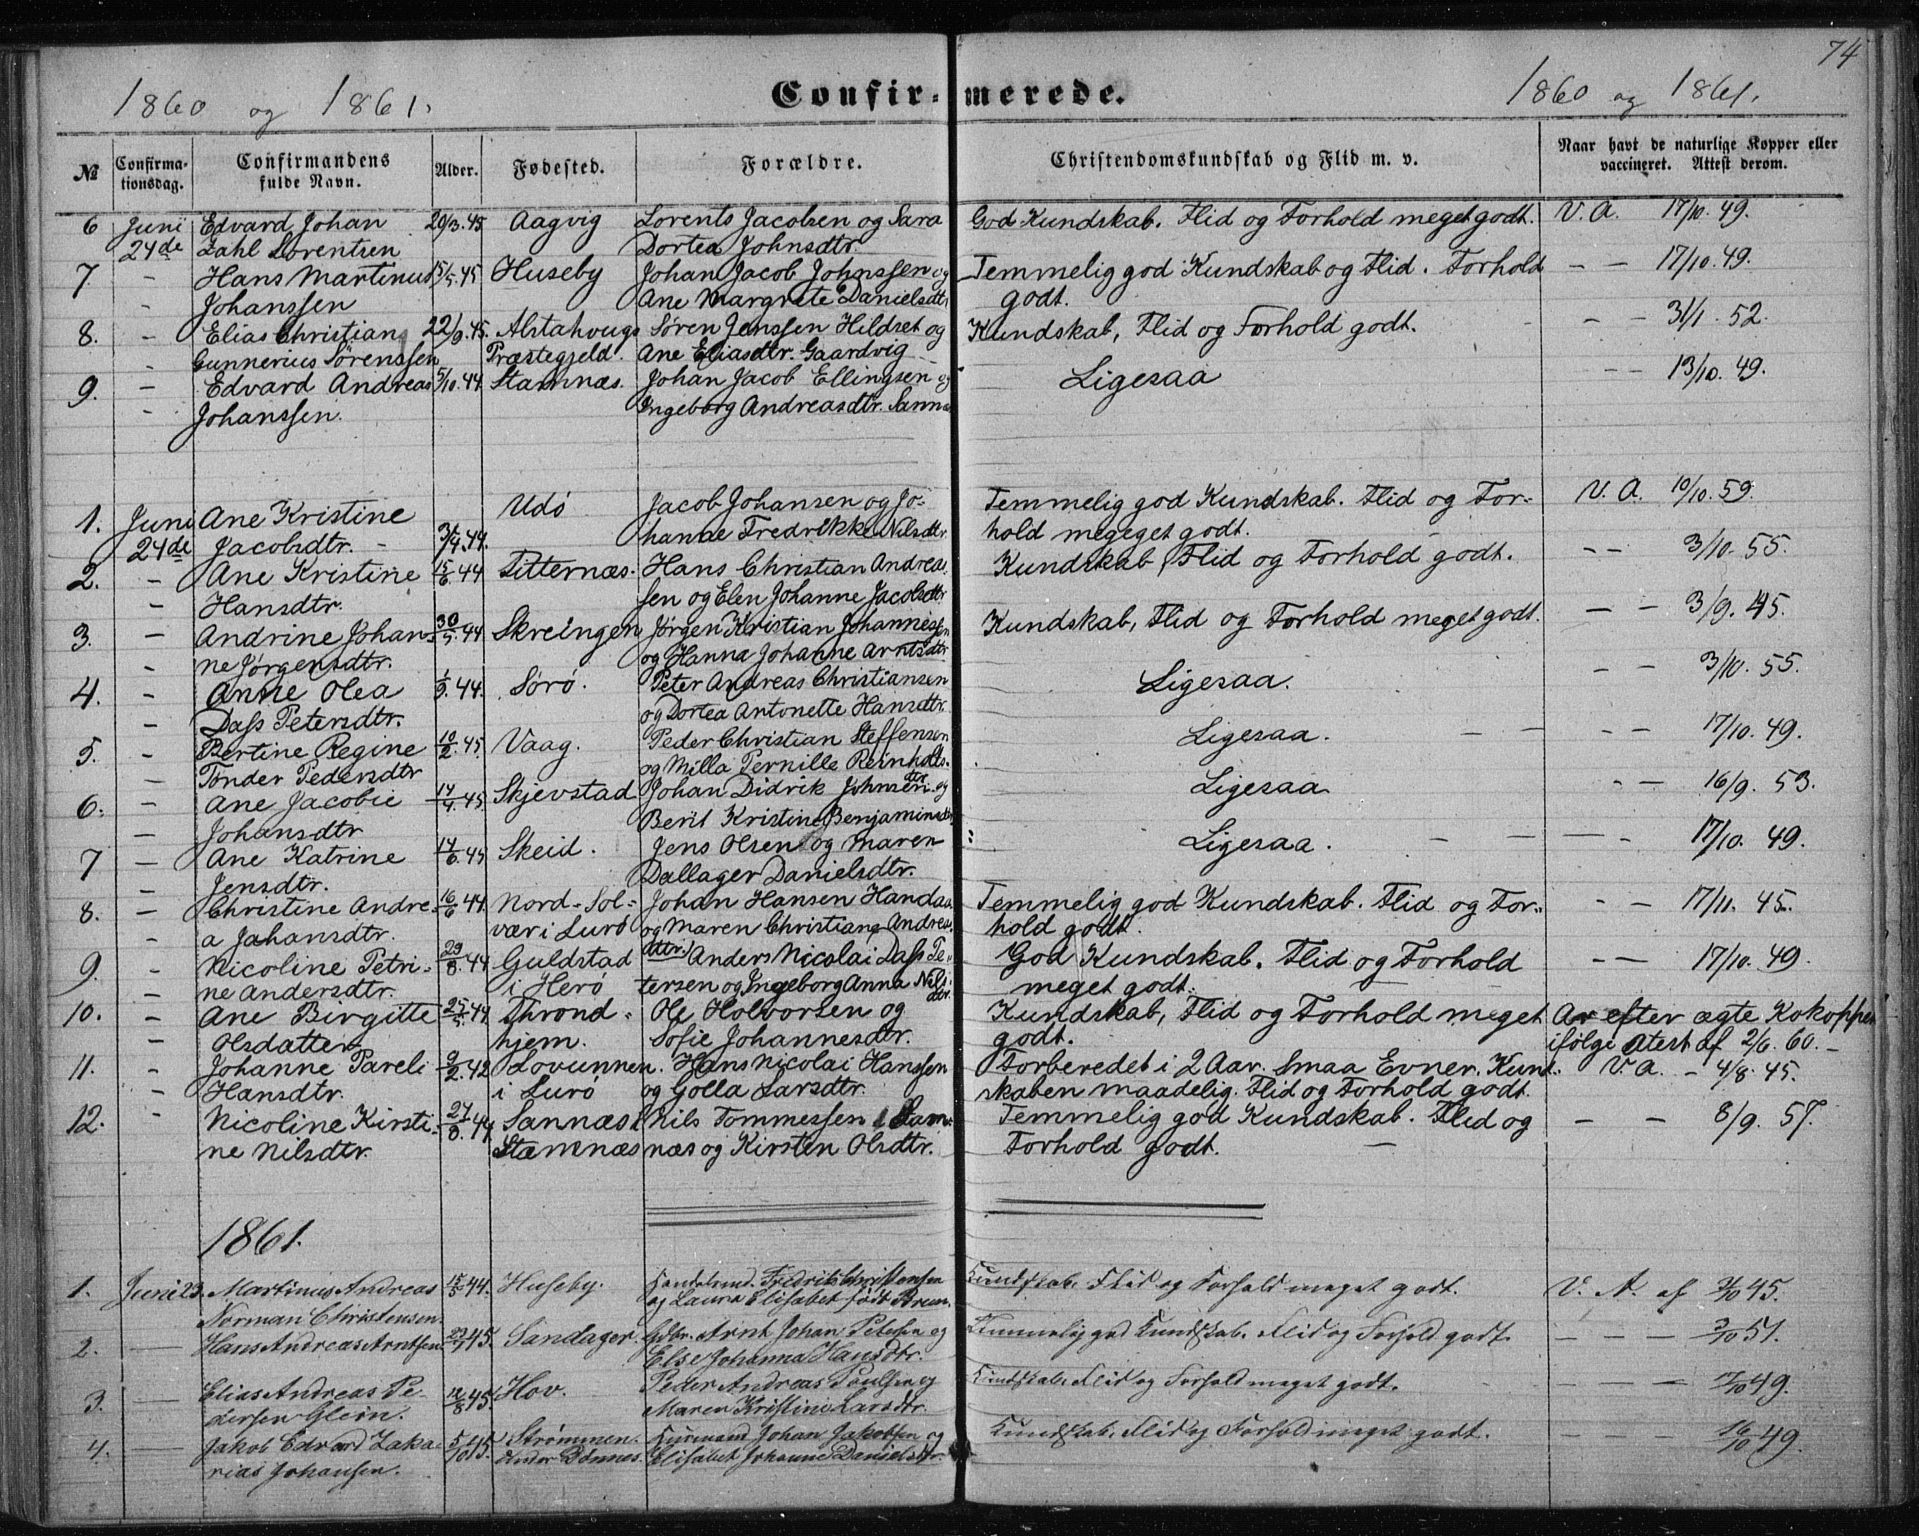 74
1860 og 1861.
Confirmerede.
1860 og 1861.
№ Confirmationsdag. Confirmandens fulde Navn. Alder. Fødested. Forældre. Christendomskundskab og Flid m. v. Naar havt de naturlige Kopper eller vaccineret. Attest derom.
6 Juni Edvard Johan 20/3.45 Aagvig Lorents Jacobsen og Sara God Kundskab. Flid og Forhold meget godt. V. A. 17/10. 49.
24de Zahl Lorentsen Dortea Johnsdtr.
7. - Hans Martinus 15/5.45 Huseby Johan Jacob Johnssen og Temmelig god Kundskab og Flid. Forhold - - 17/10. 49.
- Johanssen Ane Margrete Danielsdtr. godt.
8. - Elias Christian 22/9.45. Alstahougs Søren Jenssen Hildset og Kundskab, Flid og Forhold godt. - - 31/1. 52.
Gunnerius Sørenssen Præstegjeld. Ane Eliasdtr. Gaardvig
9. - Edvard Andreas 5/10.44. Stamnæs. Johan Jacob Ellingsen og Ligesaa - - 13/10. 49.
- Johanssen. Ingeborg Andreasdtr. Sannæs
1. Juni Ane Kristine Udø Jacob Johansen og Jo- Temmelig god Kundskab. Flid og For- V. A. 10/10. 59.
24de Jacobsdtr. - 3/4.44. hanne Fredrikke Nilsdtr. hold megeget godt.
2. - Ane Kristine 15/6.44 Titternæs. Hans Christian Andrea- Kundskab, Flid og Forhold godt. - - 3/10. 55.
- Hansdtr. sen og Elen Johanne Jacobsdtr.
3. - Andrine Johan- 30/5.44 Skreingen Jørgen Kristian Johannessen Kundskab, Flid og Forhold meget godt. - - 3/9. 45.
- ne Jørgensdtr. og Hanna Johanne Arntsdtr.
4. - Anne Olea 1/9.44. Sørø. Peter Andreas Christiansen Ligesaa. - - 3/10. 55.
- Dass Petersdtr. og Dortea Antonette Hansdtr.
5. - Bertine Regine 10/2.45. Vaag. Peder Christian Steffensen Ligesaa. - - 17/10. 49.
- Tønder Pedersdtr og Milla Pernille Reinholdsdtr.
6. - Ane Jacobie 14/4.45. Skjevstad Johan Didrik Johnsen og Ligesaa - - 16/9. 53.
- Johansdtr Berit Kristine Benjaminsdtr.
7 - Ane Katrine 14/6.45 Skeid. Jens Olsen og Maren Ligesaa. - - 17/10. 49.
- Jensdtr. Dallager Danielsdtr.
8. - Christine Andre- 16/6.44. Nord-Sol- Johan Hansen Handaa Temmelig god Kundskab. Flid og For- - - 17/11. 45.
- a Johansdtr. vær i Lurø og Maren Christiane Andreadtr. hold godt.
9 - Nicoline Petri- 29/8.44 Guldstad Anders Nicolai Dass Pe- God Kundskab. Flid og Forhold - - 17/10. 49.
- ne Andersdtr. i Herø tersen og Ingeborg Anna Nilsdtr. meget godt.
10. - Ane Birgitte 25/5.44 Thrond- Ole Holvorsen og Kundskab, Flid og Forhold meget Ar efter ægte Kokopper
- Olsdatter hjem. Sofie Johannesdtr. godt. ifølge Atest af 2/6. 60. -
11. - Johanne Pareli 9/2.42 Lovunnen. Hans Nicolai Hanssen Forberedet i 2 Aar. Smaa Evner. Kund- V. A. - 4/8. 45.
- Hansdtr. i Lurø og Golla Larsdtr. skaben maadelig. Flid og Forhold godt.
12. - Nicoline Kirsti- 27/8.44. Sannæs i Nils Tommessen Sam- Temmelig god Kundskab. Flid og - - 8/9. 57.
ne Nilsdtr. Stamnæs næs og Kirsten Olsdtr. Forhold godt. -
1861.
1. Juni 23. Martinus Andreas 15/5 44. Huseby. Handelsmd. Fredrik Christensen Kundskab, Flid og Forhold meget godt. V. A. af 3/10 45.
Norman Christensen. og Laura Elisabet født Brun.
2. - Hans Andreas Arntsen 29/7 45. Sandager. Gdbr. Arnt Johan Petersen og Temmelig god Kundskab. Flid og Forhold godt. - - - 3/10 51.
Else Johanna Hansdtr.
3. - Elias Andreas Pe- 12/8 45 Hov. Peder Andreas Poulsen og Kundskab, Flid og Forhold meget godt. - - - 17/10 49.
dersen Glein. Maren Kristine Larsdtr.
4. - Jakob Edvard Zaka- 5/10 45. Strømmen Huusmand Johan Jakobsen og Kundskab, Flid og Forhold meget godt. - - - 16/10 49.
rias Johansen. under Dønnes. Elisabet Johanne Danielsdtr.